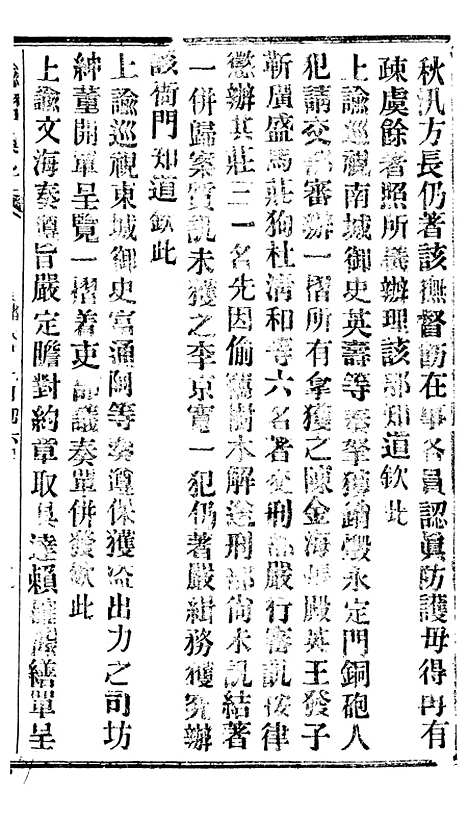 秋汛方長仍著該撫督飭在事各員認眞防護毋得再有
疎虞餘者照所議辦理該部知道欽此
上諭巡視南城御史英壽等奏拏獲銷燬永定門銅砲人
犯請交部審辦一摺所有拿獲之陳金海楊殿英王發子
靳廣盛馬莊狗杜滿和等六名著交刑部嚴行審訊按律
懲辦其莊二一名先因偷竊樹木解送刑部尚未訊結著
一併歸案質訊未獲之李京寬一犯仍著嚴緝務獲究辦
該衙門知道欽此
上諭巡視東城御史富通阿等奏遵保獲盜出力之司坊
紳董開單呈覽一摺着吏部議奏單併發欽此
上諭文海奏遵旨嚴定瞻對約章取具達賴結繕單呈